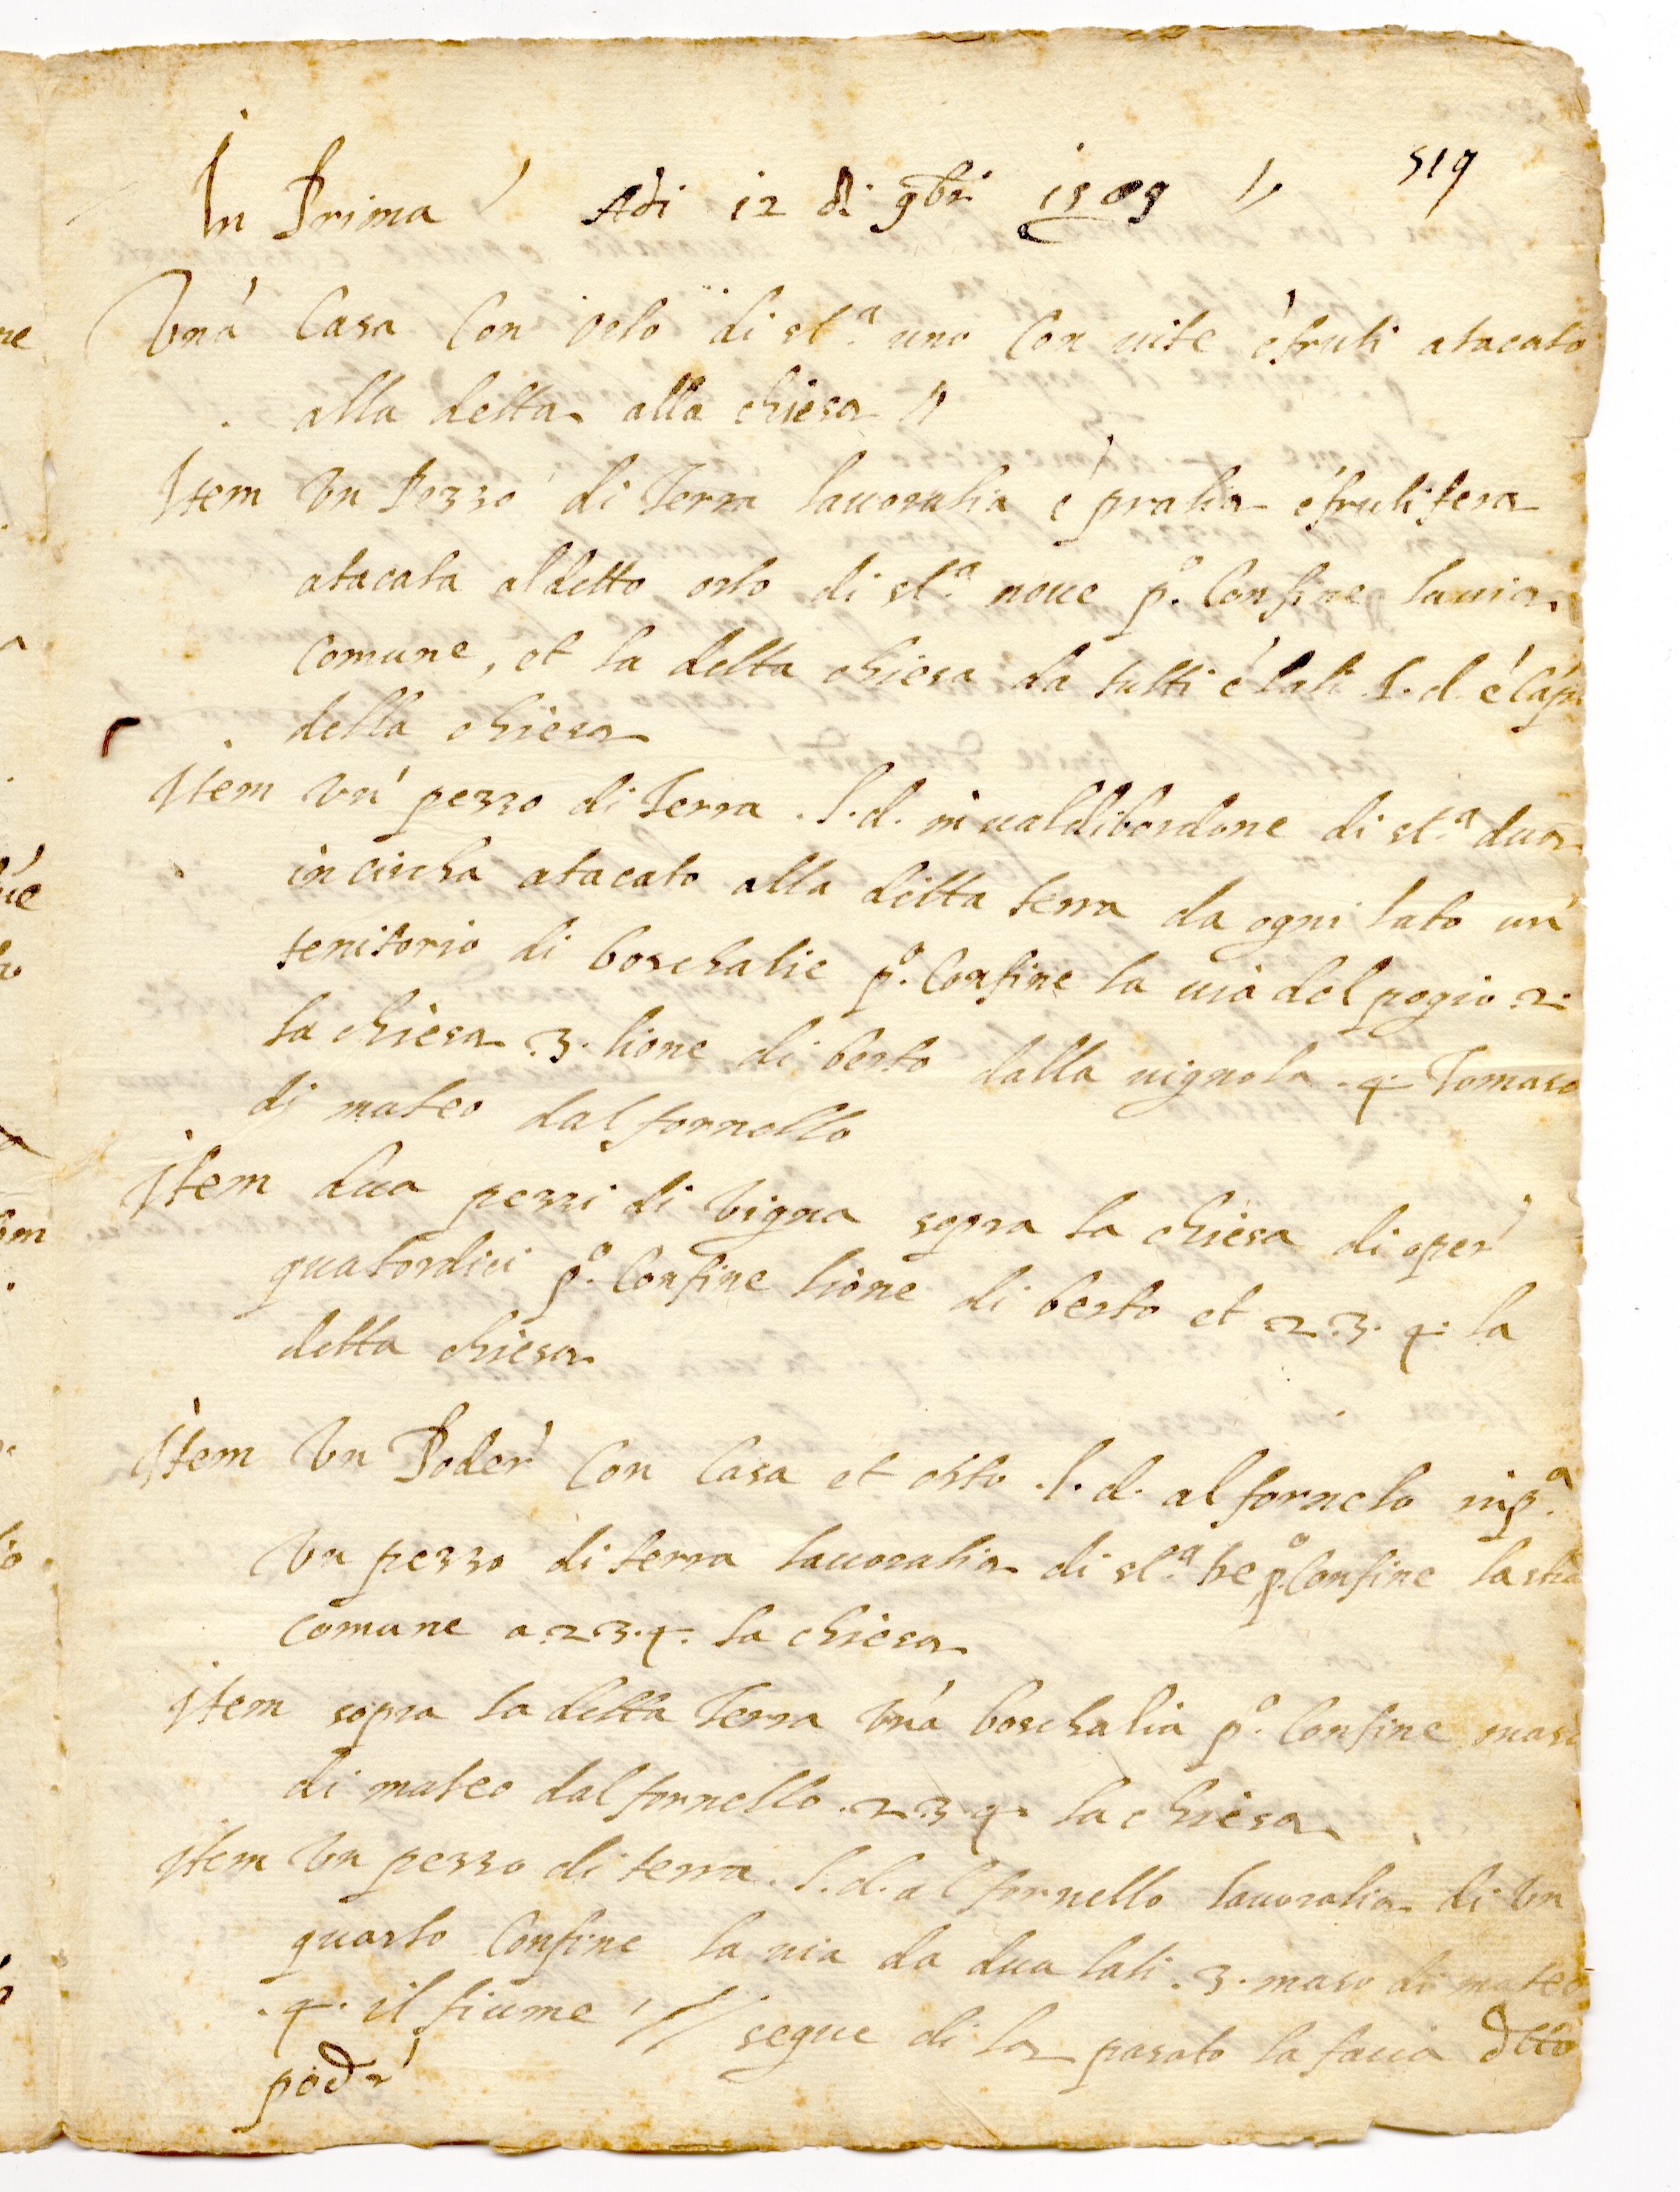 519
In Prima Adi 12 di 9bri 1509
Una Casa Con orto di st.ª uno Con uite e fruti atacato
alla detta alla chiesa
Item Un Pezzo di Terra lauoratia e pratia e frutifera
atacata al detto orto di st.ª noue p.º Confine la uia
Comune, et la detta chiesa da tutti e lati l.d. e Capi
della chiesa
Item Un pezzo di Terra .l.d. in ualdibordone di st.ª dua
in circha atacato alla detta terra da ogni lato un
tenitorio di boschalie p.º Confine la uia del pogio 2.
la chiesa .3. lione di berto dalla uignola .4. Tomaso
di mateo dal fornello
Item dua pezzi di Vigna sopra la chiesa di oper
quatordici p.º Confine lione di berto et 2.3.4. la
detta chiesa
Item Un Poder Con Casa et orto .l.d. al fornelo in p.ª
Un pezzo di terra lauoratia di st.ª tre p.º Confine la
comune a 2.3.4. la chiesa
Item sopra la detta Terra Una boschalia p.º Confine maso
di mateo dal fornello .2.3.4. la chiesa
Item Un pezzo di terra .l.d. al fornello lauoratia di Un
quarto Confine la uia da dua lati .3. maso di mateo
.4. il fiume // segue di la pasato la facia dtto
podr